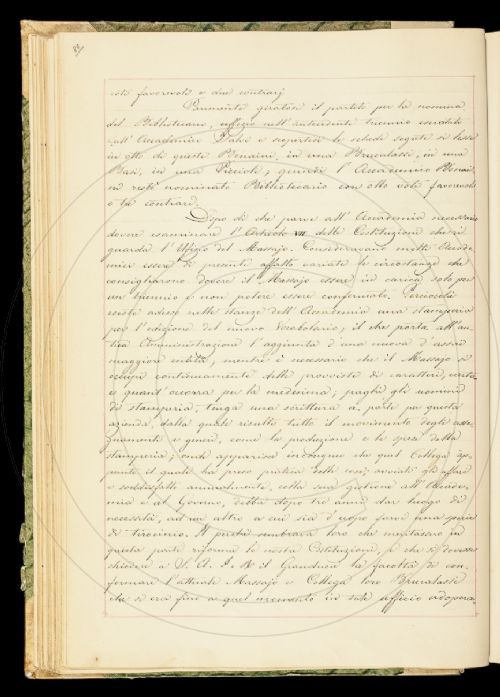 voti favorevoli e due contrarj
Parimente giratosi il partito per la nomina
del Bibliotecario, uffizio nell'antecedente triennio esercitato
dall'Accademico Dalzi e aspertesi le schede segrete si lesse
in otto di queste Benaini, in una Brucalassi, in una
Basi, in una Piccioli, quindi l'Accademico Benai
ni restò nominato Bibliotecario con otto voti favorevoli
e tre contrarj.
Dopo di che parve all'Accademia necessario
dovere esaminare l'Articolo VII. delle Costituzioni che ri
guarda l'Ufizio del Massajo. Consideravano molti Accade
mici essere di presenti affatto variate le circostanze che
consigliarono dovere il Massajo essere in carica solo per
un triennio e non potere essere confermato. Perciocchè
esiste adesso nelle stanze dell'Accademia una stamperia
per l'edizione del nuovo Vocabolario; il che porta all'an
tica Amministrazione l'aggiunta d'una nuova d'assai
maggiore entità, mentre è necessario che il Massajo si
occupi continuamente delle provviste di caratteri, carta
e quant'occorra per la medesima; paghi gli uomini
di stamperia; tenga una scrittura a parte per questa
azienda, dalla quale risulti tutto il movimento degli asse
gnamenti e generi, come la produzione e le spese della
stamperia; onde appariva incongruo che quel Collega ap
punto il quale ha preso pratica delle cose, avviati gli affari
e soddisfatto annualmente colla sua gestione all'Accade
mia e al Governo, debba dopo tre anni dar luogo di
necessità, ad un altro a cui sia d'uopo fare una specie
di tirocinio. Il perchè sembrava loro che meritassero in
questa parte riforma le nostre Costituzioni, e che si dovesse
chiedere a S. A. I. e R. il Granduca la facoltà di con
fermare l'attuale Massajo e Collega loro Brucalassi
che si era fino a quel momento in tale ufficio adopera